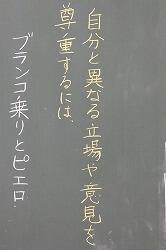 自分と異なる立場や意見を
尊重するには、
ブランコ乗りとピエロ